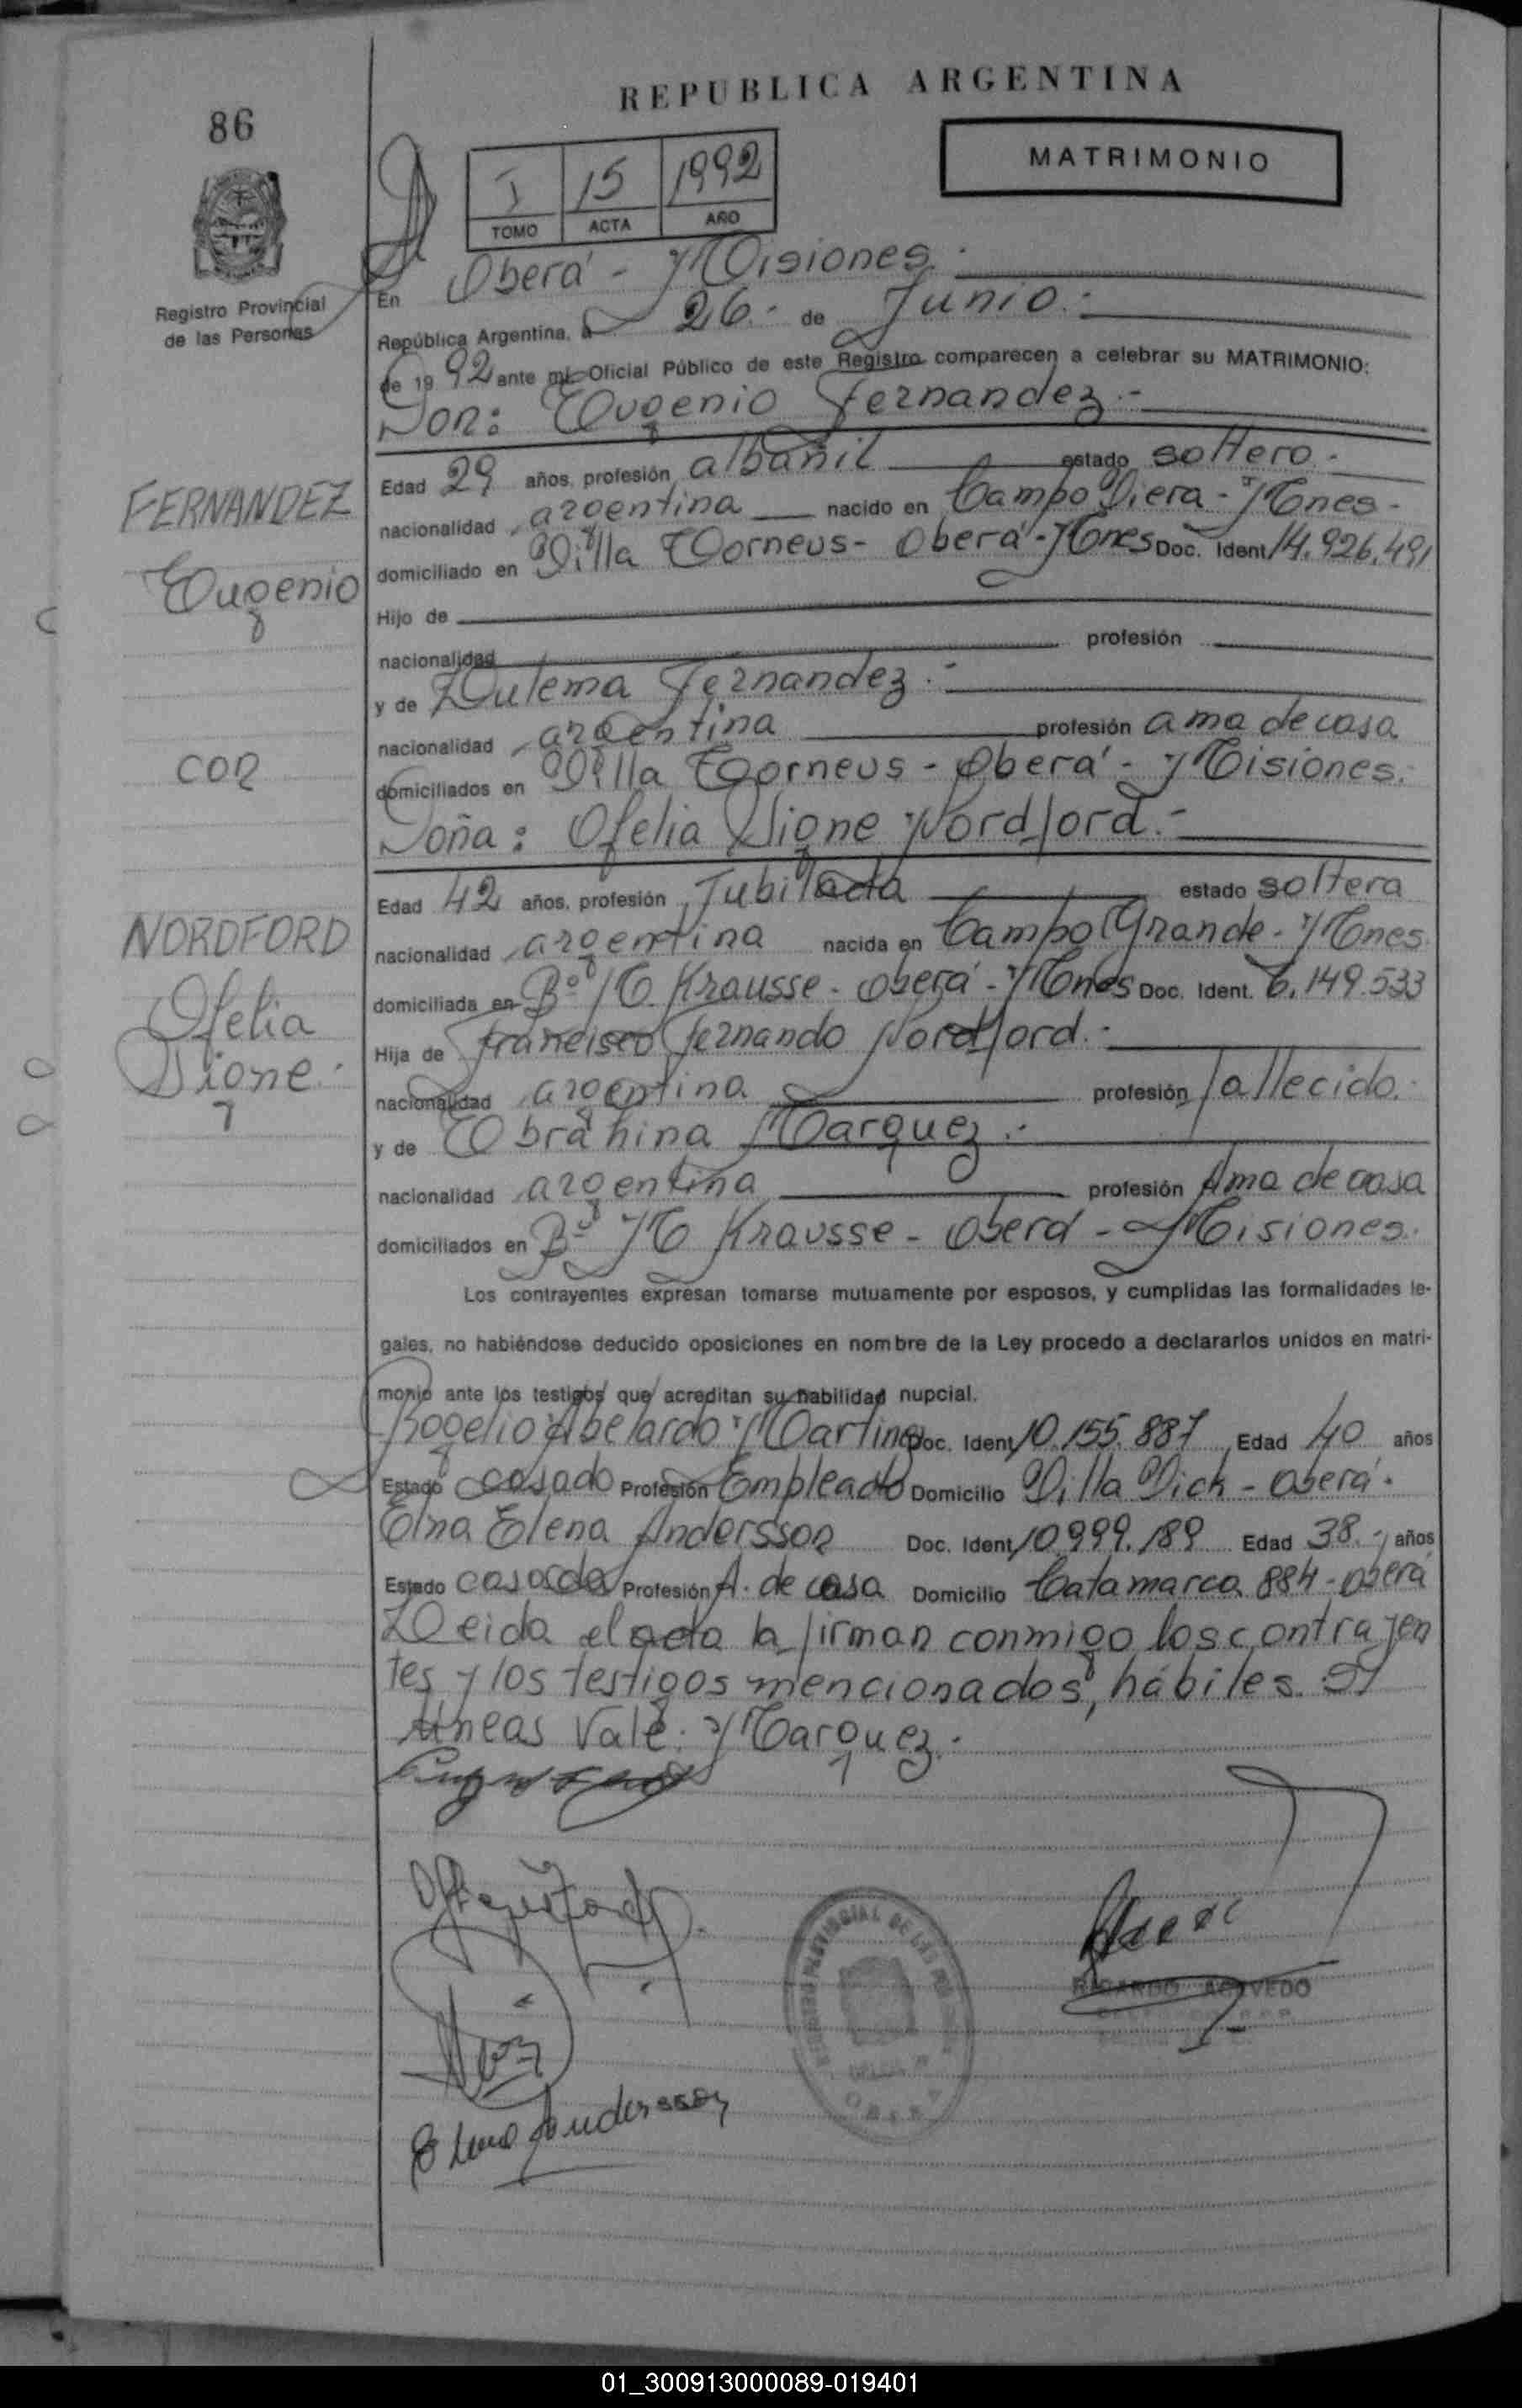 REPUBLICA ARGENTINA
86
MATRIMONIO
I 15 1992
TOMO ACTA AÑO
Registro Provincial
de las Personas
En Oberá - Misiones.-
República Argentina, a 26.- de Junio.-
de 1992 ante mi Oficial Público de este Registro comparecen a celebrar su MATRIMONIO:
Don: Eugenio Fernandez.-
Edad 29 años, profesión albañil estado soltero.-
nacionalidad argentina nacido en Campo Viera - Mnes-
domiciliado en Villa - Oberá - Mnes Doc. Ident 14.926.491
Hijo de
nacionalidad profesión
y de Zulema Fernandez.-
nacionalidad argentina profesión ama de casa
domiciliados en Villa - Oberá - Misiones.-
Doña: Ofelia Signe Nordford.-
Edad 42 años, profesión Jubilada estado soltera
nacionalidad argentina nacida en Campo Grande - Mnes
domiciliada en Bº M Krausse - Oberá - Mnes Doc. Ident. 6.149.533
Hija de Francisco Fernando Nordford.-
nacionalidad argentina profesión fallecido.-
y de Abrahina Marquez.-
nacionalidad argentina profesión Ama de casa
domiciliados en Bº M Krausse - Oberá - Misiones.
FERNANDEZ
Eugenio
con
NORDFORD
Ofelia
Signe.-
Los contrayentes expresan tomarse mutuamente por esposos, y cumplidas las formalidades le-
gales, no habiéndose deducido oposiciones en nombre de la Ley procedo a declararlos unidos en matri-
monio ante los testigos que acreditan su habilidad nupcial.
Rogelio Abelardo Martinez Doc. Ident 10.155.887 Edad 40 años
Estado casado Profesión Empleado Domicilio Villa Dick - Oberá.
Elna Elena Andersson Doc. Ident 10.999.189 Edad 38.- años
Estado casada Profesión A. de casa Domicilio Catamarca 884 - Oberá
Leida el acta la firman conmigo los contrayen
tes y los testigos mencionados, hábiles.
lineas Vale: Marquez.-
Elena Andersson
REGISTRO PROVINCIAL DE LAS PERSONAS
OBERA
RICARDO ACEVEDO
01_300913000089-019401